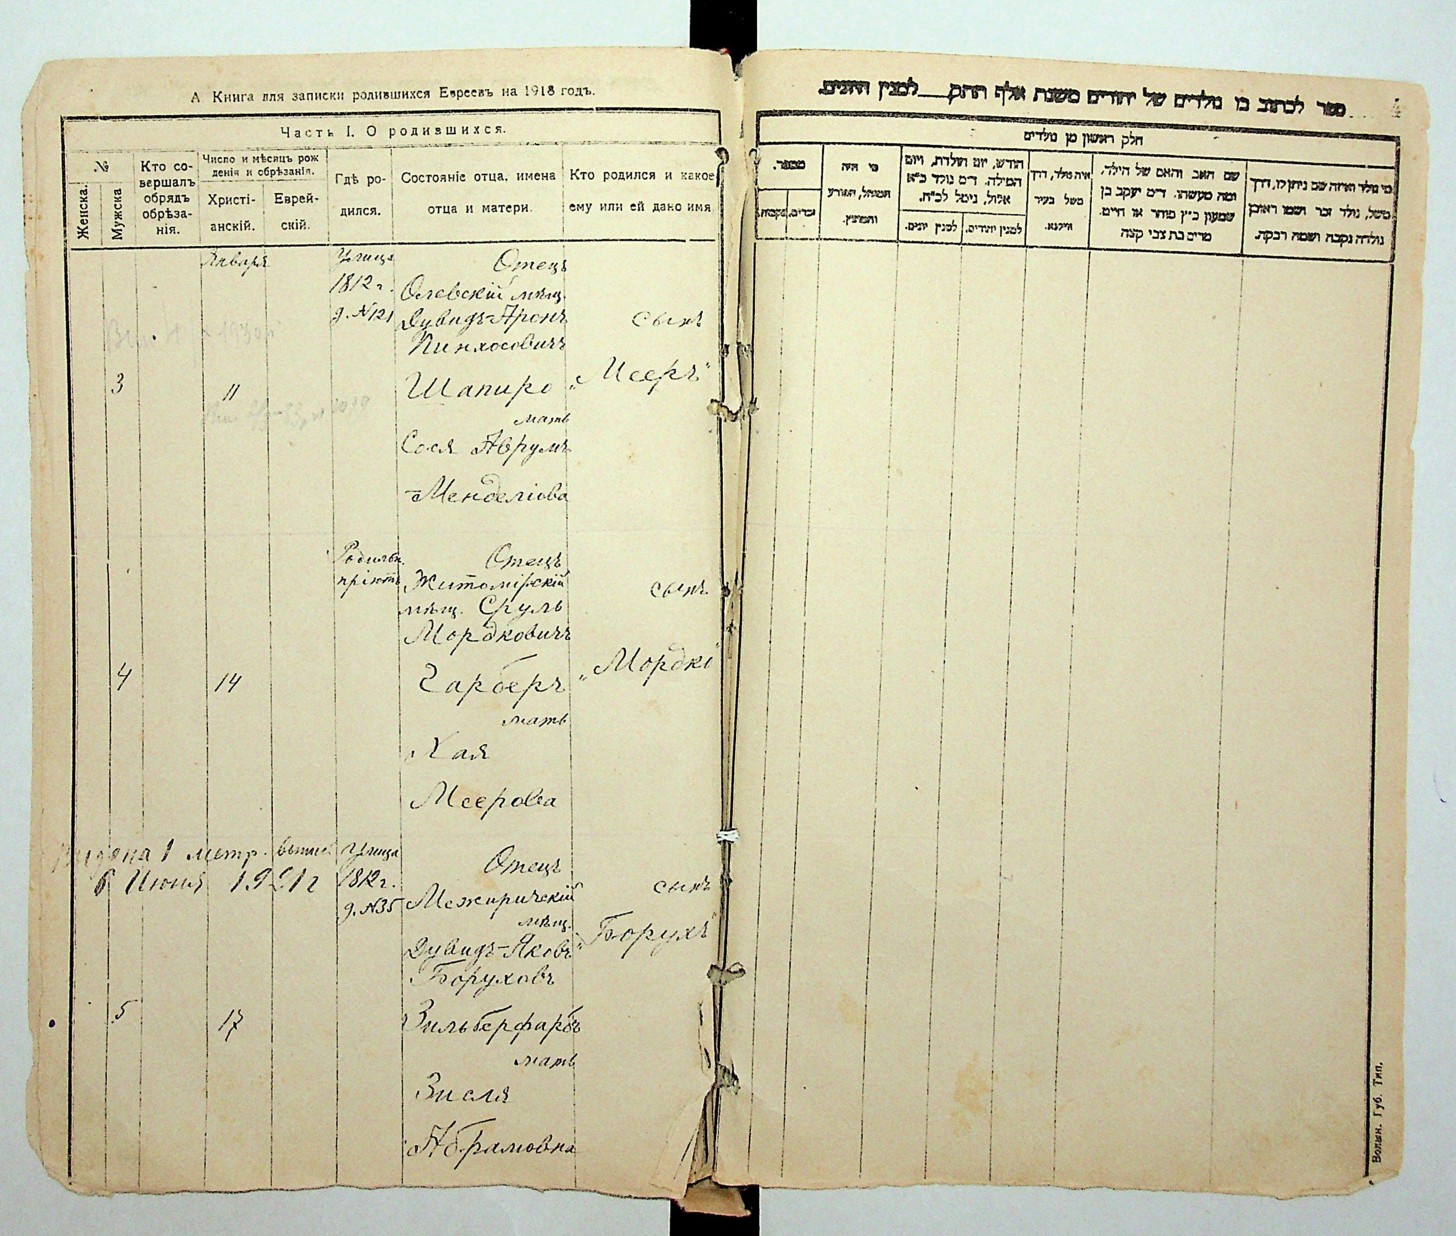 А Книга для записки родившихся Евреевъ на 1918 годъ.
Часть I. О родившихся.
№
Женска.
Мужска
Кто со-
вершалъ
обрядъ
обрѣза-
нія.
Число и мѣсяцъ рож
денія и обрѣзанія.
Христі-
анскій.
Еврей-
скій.
Гдѣ ро-
дился.
Состояніе отца, имена
отца и матери.
Кто родился и какое
ему или ей дано имя
Января
Улица
1812 г.
д. №121
Отецъ
Олевскій мѣщ.
Дувидъ-Аронъ
Пинхосовичъ
сынъ
3
11
Шапиро
„Мееръ“
мать
Сося Аврумъ
-Менделіова
Родильн.
пріютъ
Отецъ
Житомірскій
мѣщ. Сруль
Мордковичъ
сынъ
4
14
Гарберъ
„Мордко
мать
Хая
Меерова
Выдана 1 метр. выпись
6 Июня 1921 г
Улица
1812 г.
д. №35
Отецъ
Межиричскій
мѣщ.
Дувидъ-Яковъ
Боруховъ
сынъ
„Борухъ“
5
17
Зильберфарбъ
мать
Зисля
Абрамовна
ספר לכתוב בו נולדים של יהודים משנת אלף התתק לפנין הזנים.
חלק ראשון מן נולדים
מספר.
זכרים.
נקבות.
מי היה
המוהל, הפורע
והמוצץ.
חודש, יום הולדת, ויום
המילה. ד״מ נולד כ״א
אלול, נימל לכ״ח.
למנין יונים.
למנין יהודים.
איה נולד, דרך
משל בעיר
ווילנא.
שם האב והאם של הילד,
ומה מעשהו. ד״מ יעקב בן
שמעון כ״ץ סוחר או חיים.
מרים בת צבי קצה
מי נולד ואיזה שם ניתן לו, דרך
משל, נולד זכר ושמו ראובן
נולדה נקבה ושמה רבקה.
Волын. Губ. Тип.